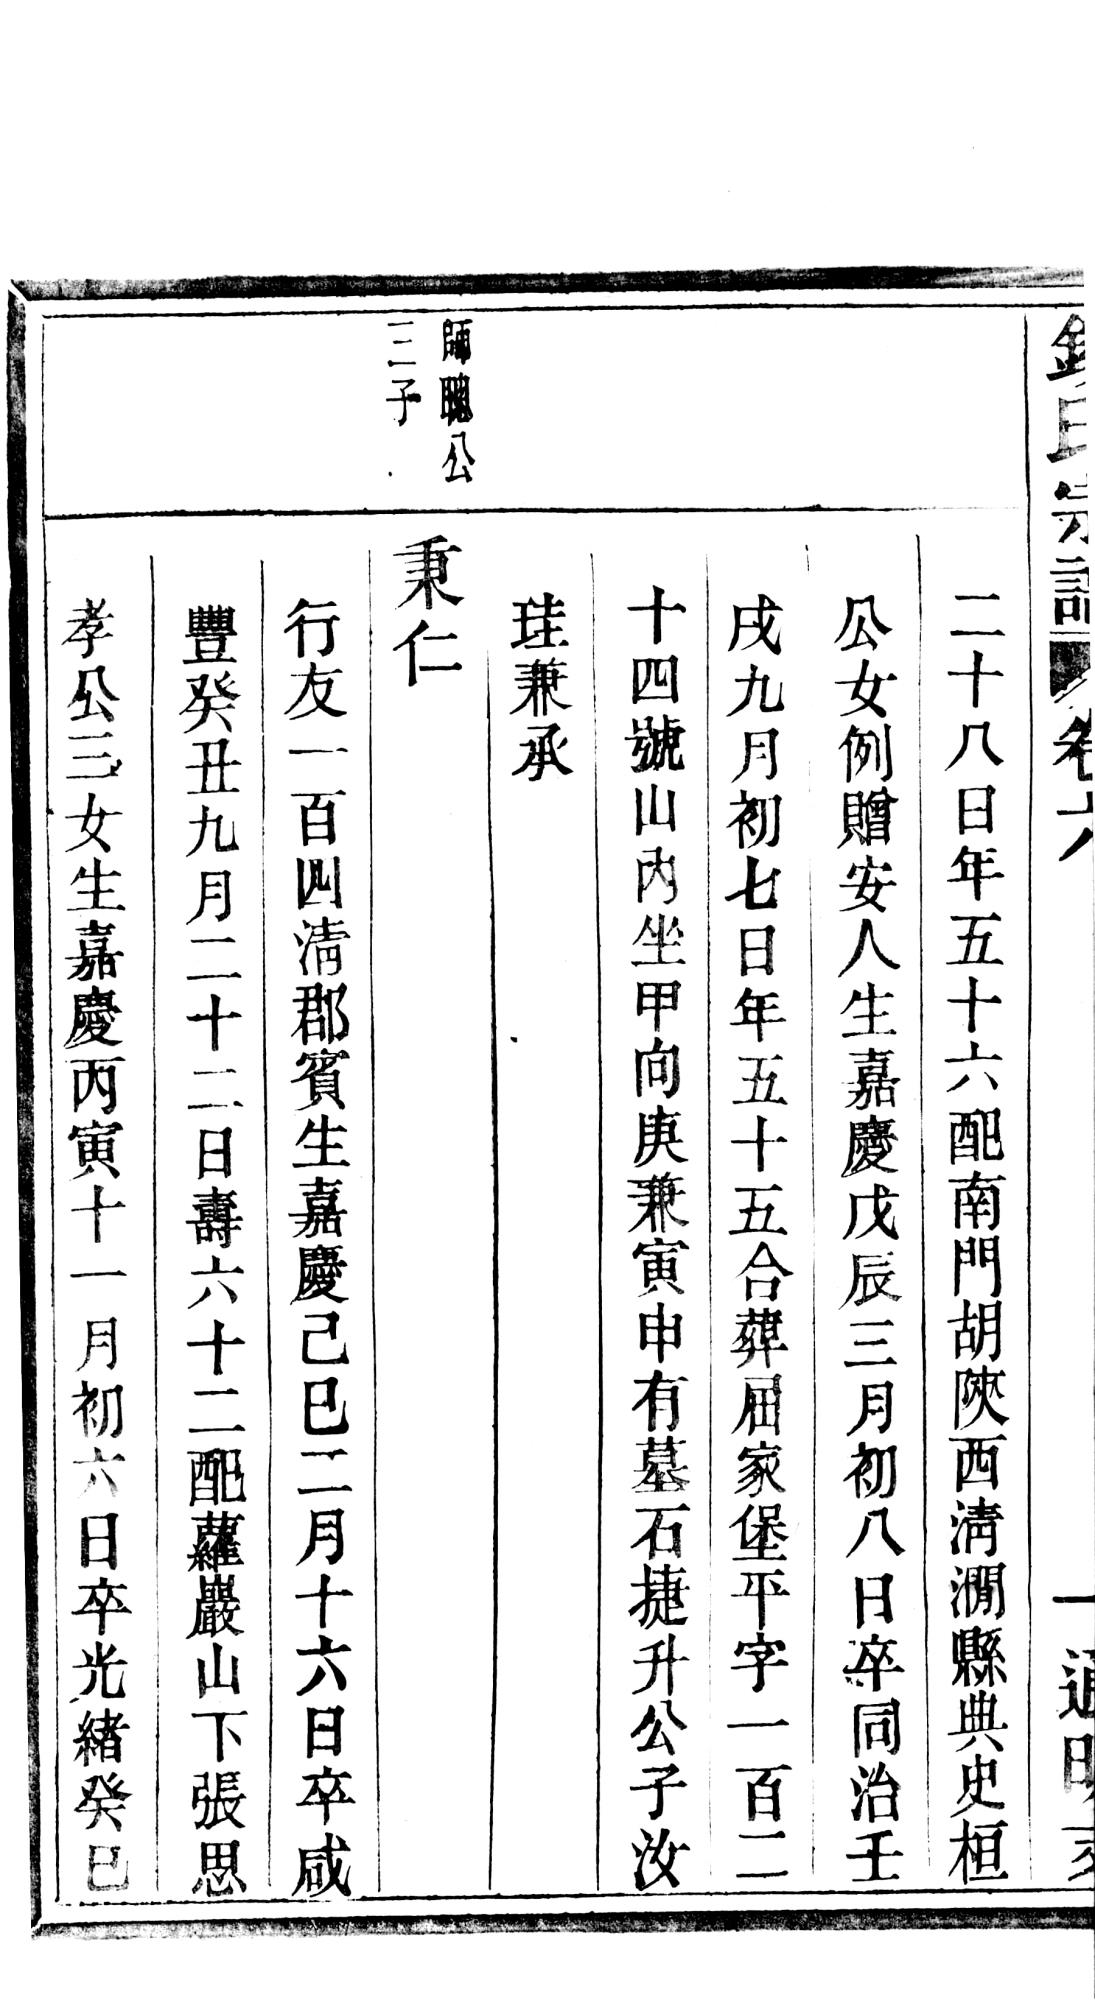 氏宗譜 卷六
二十八日年五十六配南門胡陝西淸澗縣典史桓
公女例贈安人生嘉慶戊辰三月初八日卒同治壬
戌九月初七日年五十五合葬屆家堡平字一百二
十四號山內坐甲向庚兼寅申有墓石捷升公子汝
珪兼承
師聰公
三子
秉仁
行友一百四淸郡賓生嘉慶己巳二月十六日卒咸
豐癸丑九月二十二日壽六十二配蘿巖山下張思
孝公三女生嘉慶丙寅十一月初六日卒光緖癸巳